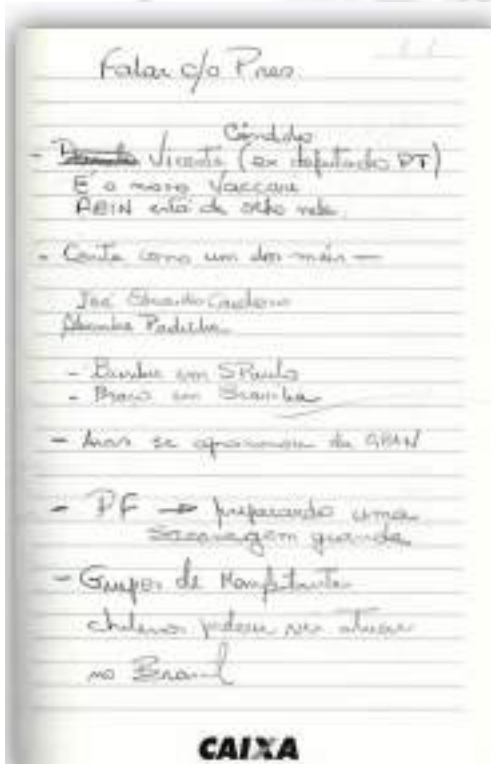 Falar c/o Pres
Cândido
- Vicente (ex deputado PT)
É o novo Vaccari
ABIN está de olho nele.
- Conta como um dos mais —
José Eduardo Cardozo
Padilha
- em SPaulo
- Braço em Brasília
- se da GRAN
- PF → preparando uma
sacanagem grande
- Grupos de
chilenos podem vir atuar
no Brasil
CAIXA